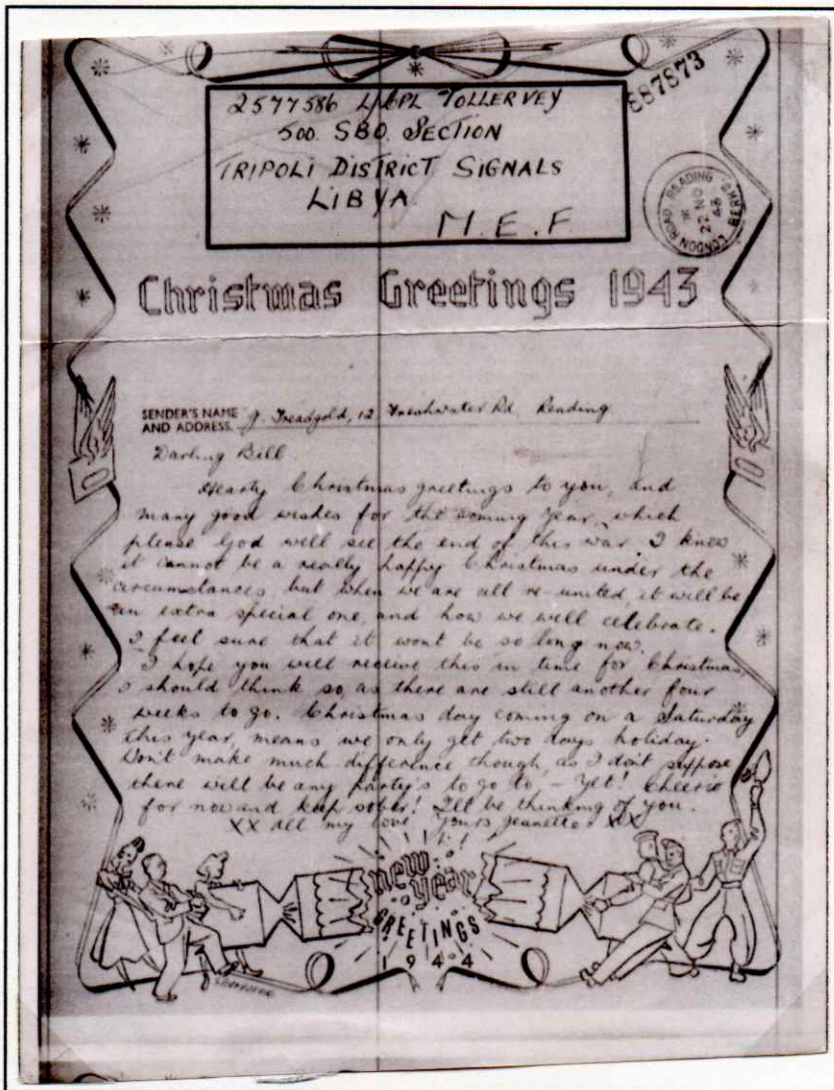 2577586 L/CPL TOLLERVEY
500. SBO. SECTION
TRIPOLI DISTRICT SIGNALS
LIBYA.
M.E.F
887873
LONDON ROAD, READING BERKS
22 NO
43
Christmas Greetings 1943
SENDER'S NAME J. Treadgold, 12 Freshwater Rd. Reading.
AND ADDRESS.
Darling Bill.
Hearty Christmas greetings to you, and
many good wishes for the coming year, which
please God will see the end of this war. I know
it cannot be a really happy Christmas under the
circumstances, but when we are all re-united, it will be
an extra special one, and how we will celebrate.
I feel sure that it wont be so long now.
I hope you will receive this in time for Christmas,
I should think so, as there are still another four
weeks to go. Christmas day coming on a Saturday
this year, means we only get two days holiday.
Won't make much difference though, as I don't suppose
there will be any party's to go to – Yet! Cheerio
for now and keep sober! I'll be thinking of you.
XX All my love Yours Jeanette. XXX
new
year
GREETINGS
1944